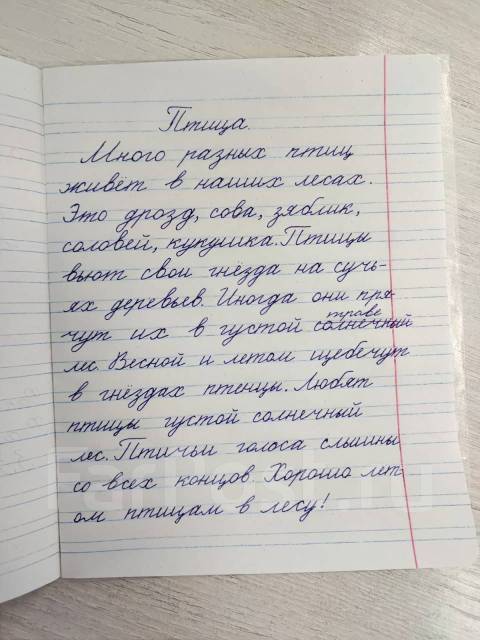 Птица.
Много разных птиц
живёт в наших лесах.
Это дрозд, сова, зяблик,
соловей, кукушка. Птицы
вьют свои гнёзда на сучь-
ях деревьев. Иногда они пря-
траве
чут их в густой солнечный
лес. Весной и летом щебечут
в гнёздах птенцы. Любят
птицы густой солнечный
лес. Птичьи голоса слышны
со всех концов. Хорошо лет-
ом птицам в лесу!